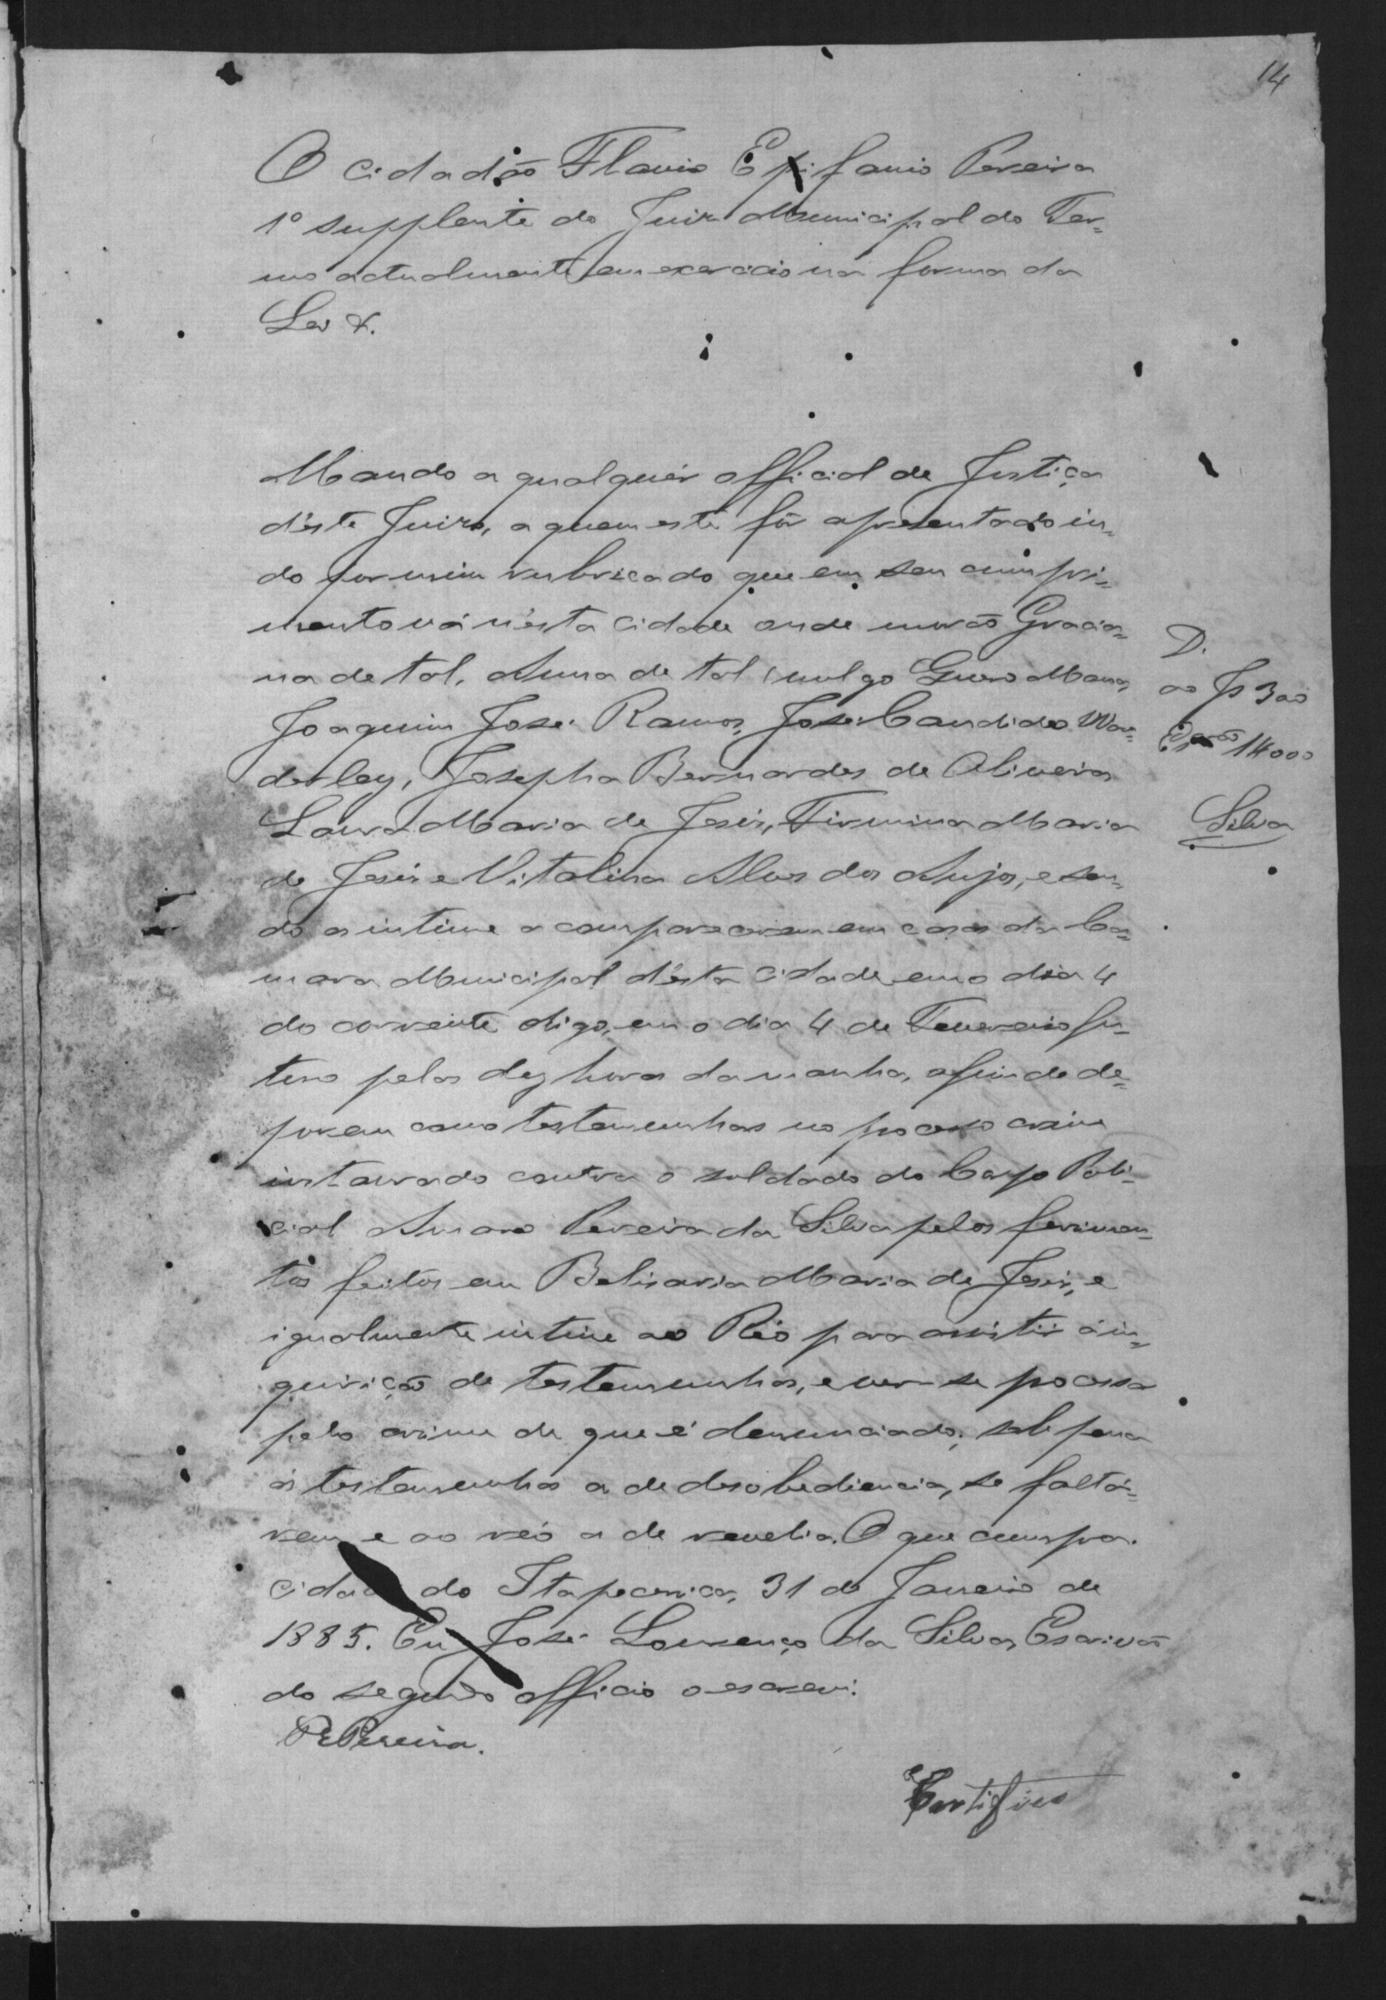 14
O cidadão Flavio Epifanio Pereira
1º supplente do Juiz Municipal do Ter=
mo actualmente em exercicio na forma da
Lei &.
Mando a qualquer official de Justiça
déste Juizo, a quem este fôr apresentado in=
do por mim rubricado que em seu cumpri=
mento vá n'ésta cidade onde morão Gracia=
na de tal, Anna de tal vulgo
Joaquim José Ramos, José Candido Wan=
derley, Josepha Bernardes de Oliveira
Laura Maria de Jesus, Firmina Maria
de Jesus e Vitalina Alves dos Anjos, e sen=
do as intime a comparecerem em casa da Ca=
mara Municipal désta cidade em o dia 4
do corrente digo, em o dia 4 de Fevereiro fu=
turo pelas dez horas da manha, afim de de=
porem como testemunhas no processo crime
instaurado contra o soldado do Corpo Poli=
cial Amaro Pereira da Silva pelos ferimen=
tos feitos em Belisaria Maria de Jesus, e
igualmente intime ao Réo para assistir á in=
quirição de testemunhas, e ver-se processar
pelo crime de que é denunciado; sob pena
ás testemunhas a de desobediencia, se faltá=
rem e ao réo a de revelia. O que cumpra.
Cidade do Itapecerica, 31 de Janeiro de
1885. Eu José Lourenço da Silva, Escrivão
do segundo officio o escrevi.
Pereira.
Certifico
D.
ao Js 300
Escrão 14000
Silva